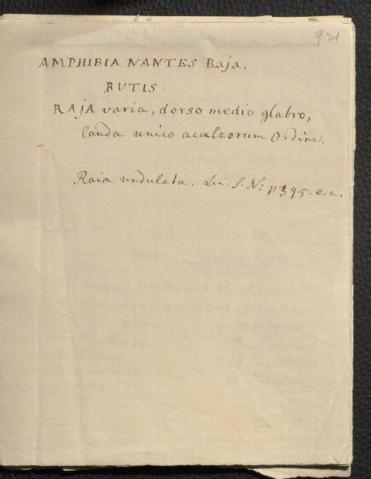 921
AMPHIBIA NANTES Raja.
BUTIS.
RAJA varia, dorso medio glabro,
Cauda unico aculeorum Ordine.
Raia undulata. Lin. S. N: p 395.